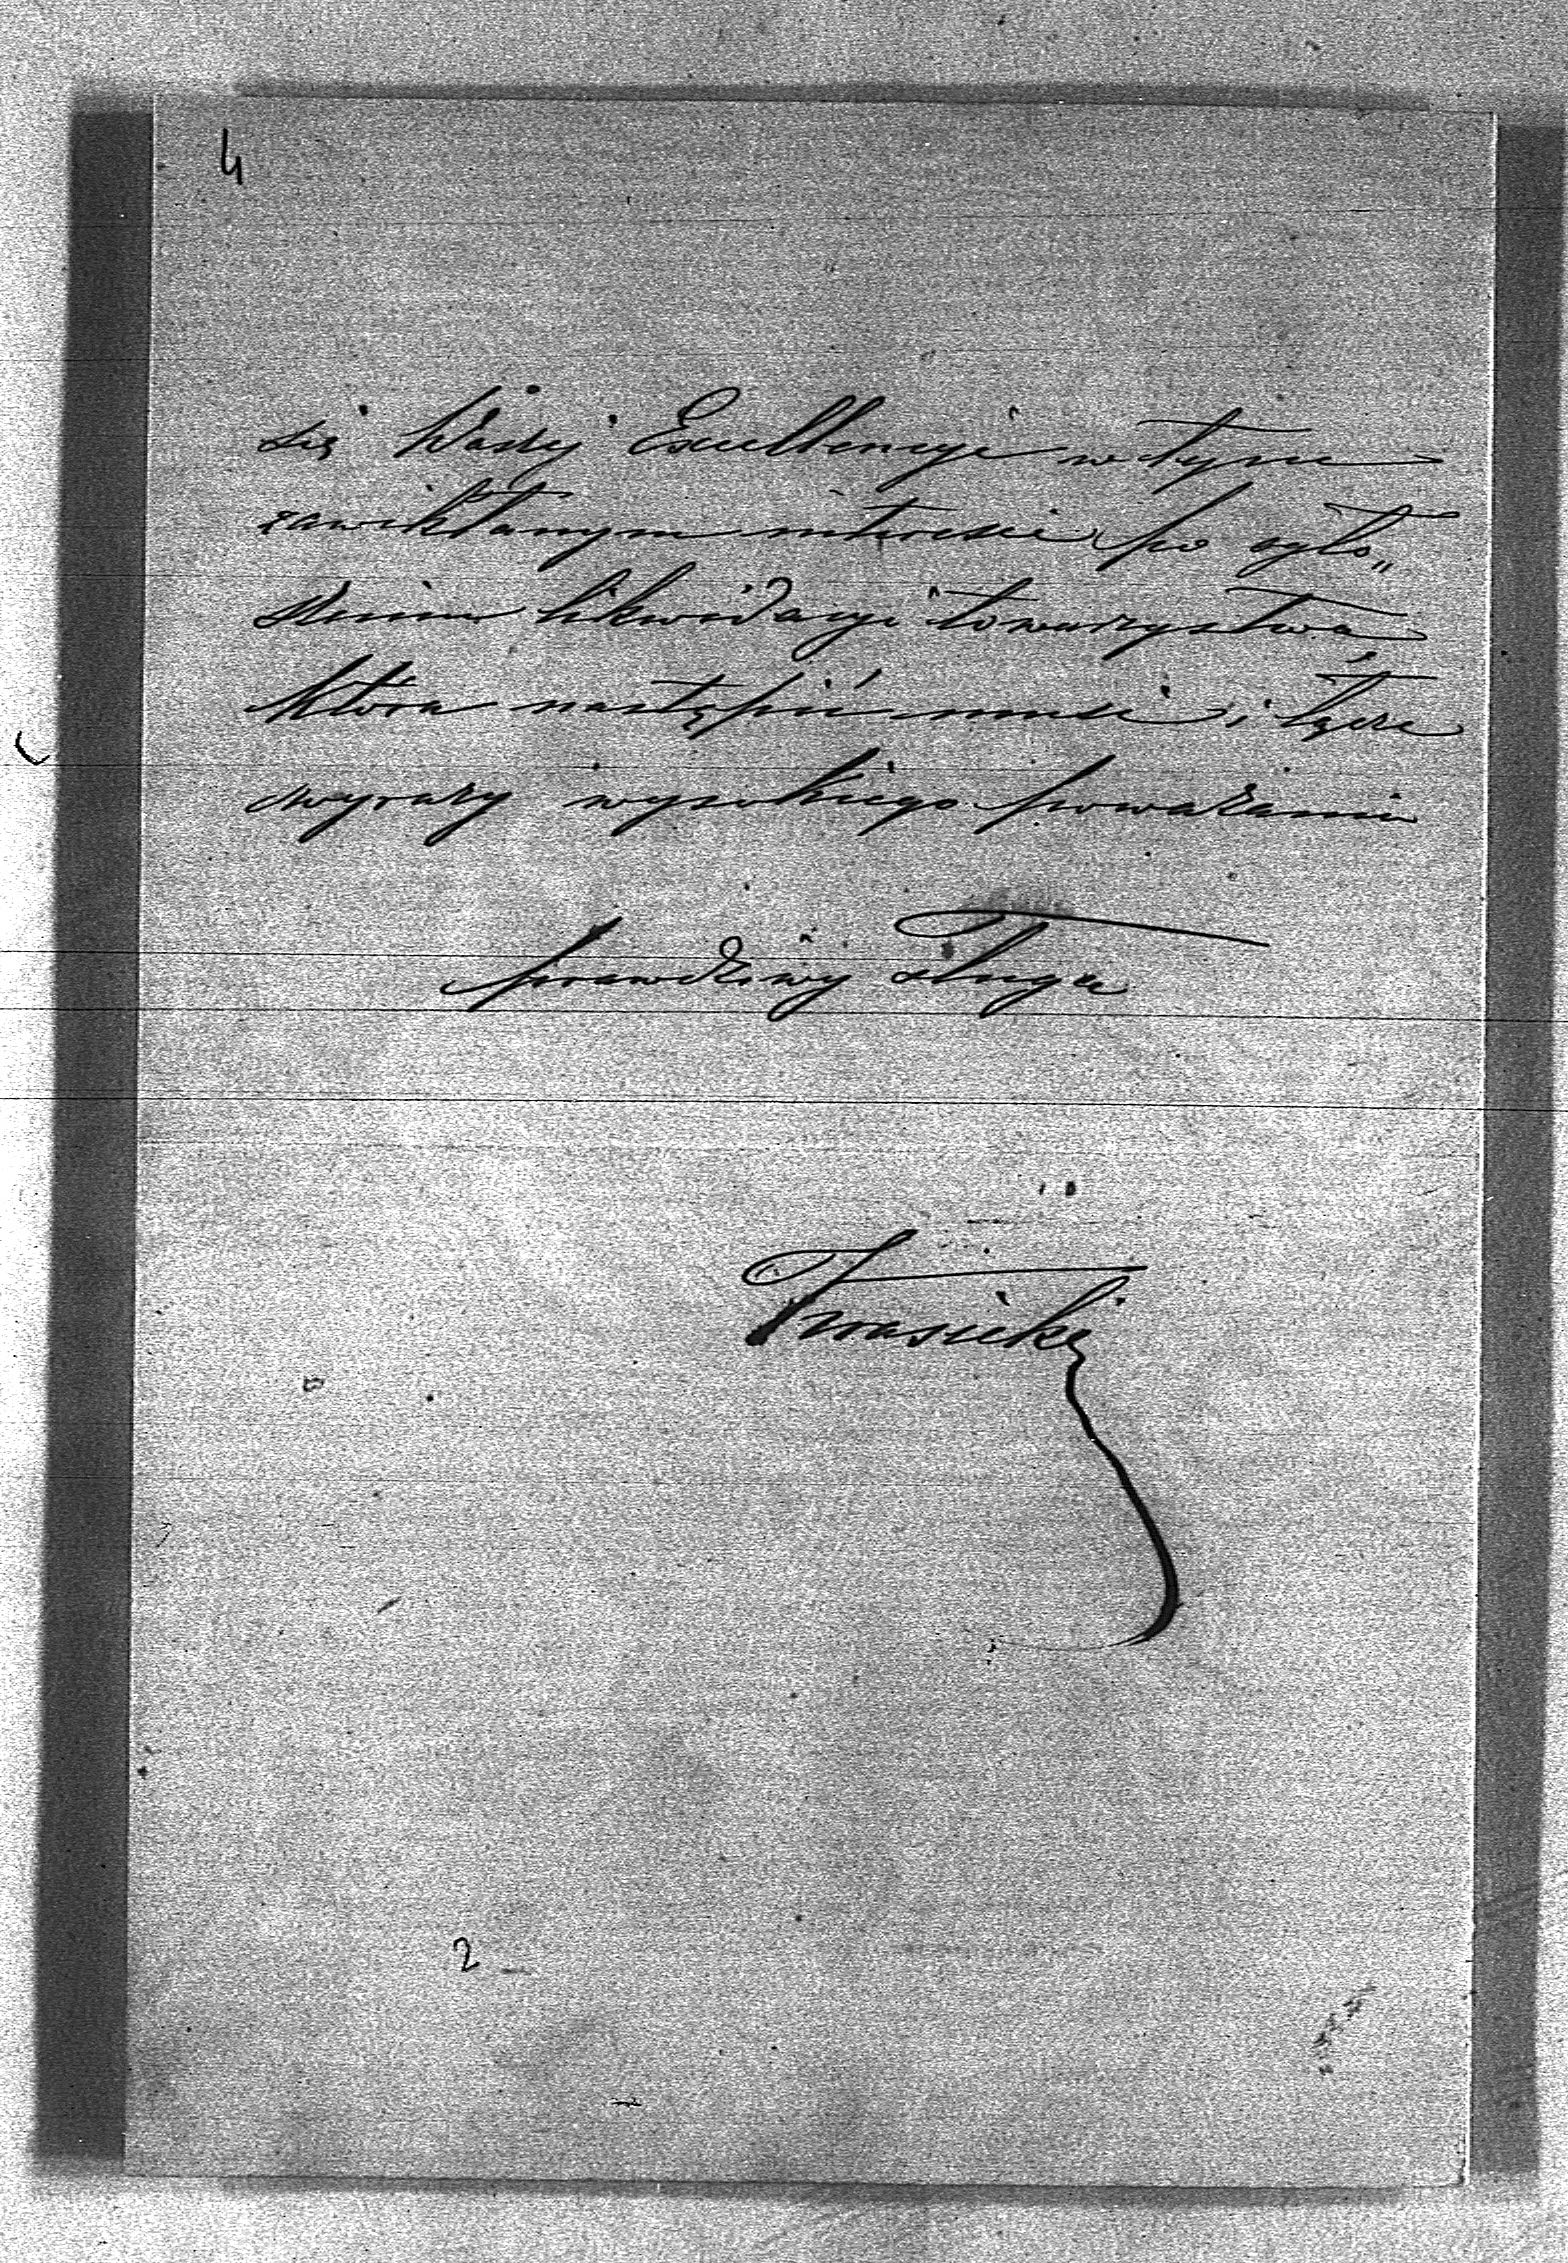 4
się Waszej Excellencyi w tym
zawikłanym interesie po ogło„
szeniu likwidacyi towarzystwa,
która nastąpić musi i łączę
wyrazy wysokiego poważania
prawdziwy sługa
Krasicki
2